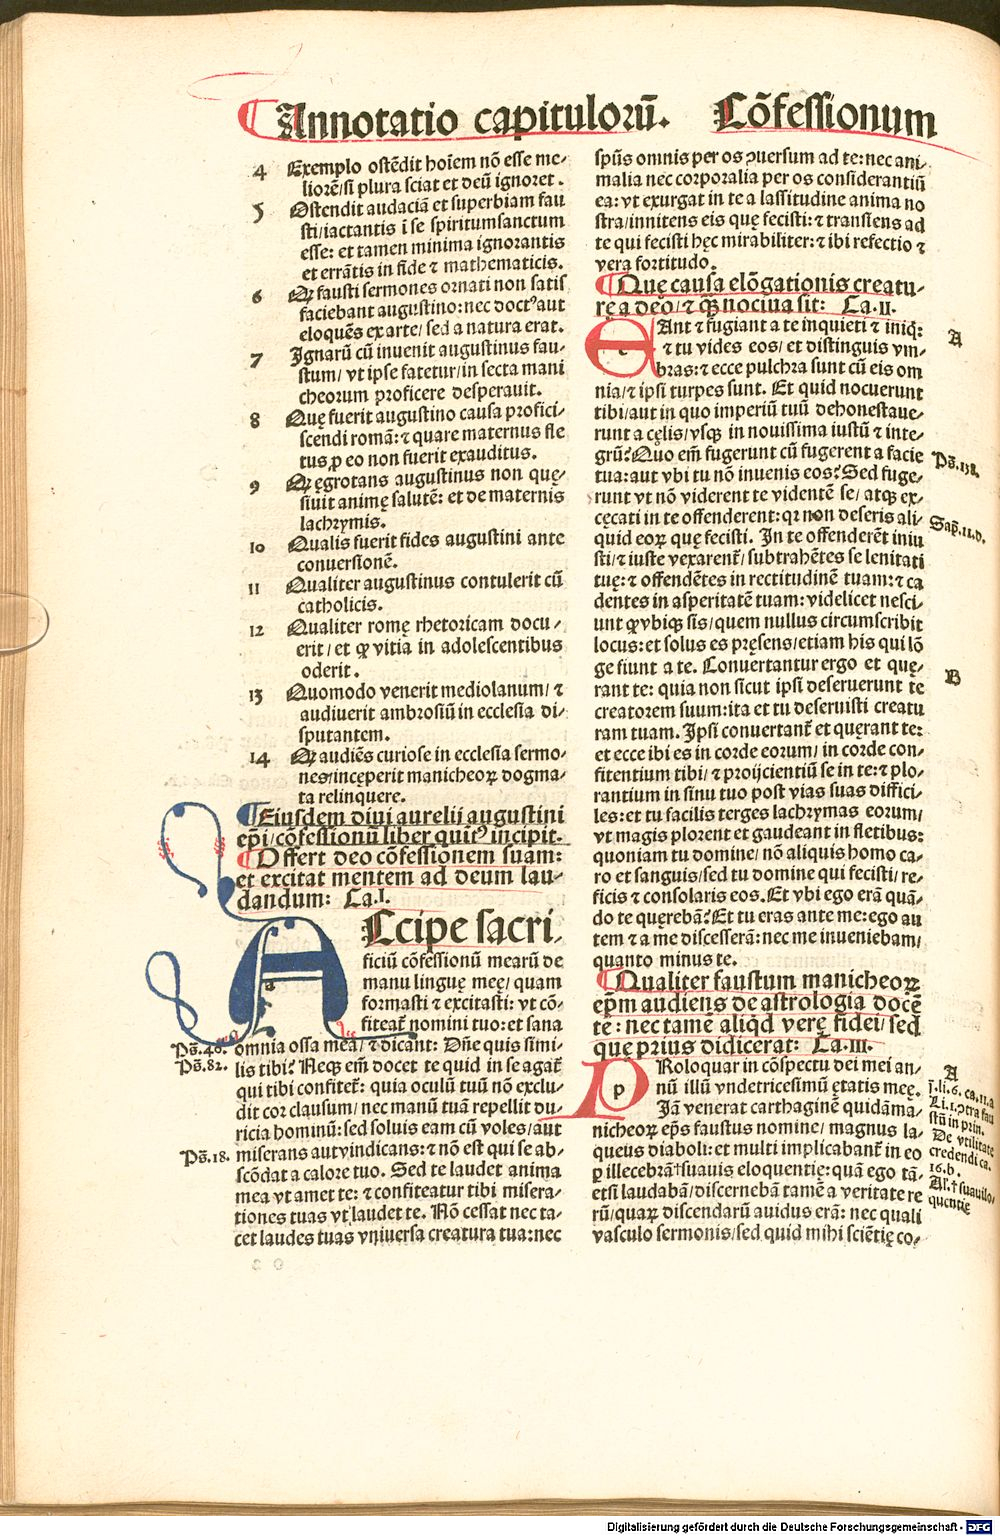 ¶Annotatio capitulorū. Cōfessionum
4 Exemplo ostēdit hoīem nō esse me-
liorē/si plura sciat et deū ignoret.
5 Ostendit audaciā et superbiam fau
sti/iactantis ī se spiritumsanctum
esse: et tamen minima ignorantis
et errātis in fide ⁊ mathematicis.
6 Qꝙ fausti sermones ornati non satis
faciebant augustino: nec doctꝰ aut
eloquēs ex arte/sed a natura erat.
7 Ignarū cū invenit augustinus fau-
stum/vt ipse fatetur/in secta mani
cheorum proficere desperauit.
8 Quę fuerit augustino causa profici-
scendi romā: ⁊ quare maternus fle
tus ꝓ eo non fuerit exauditus.
9 Qꝙ ęgrotans augustinus non quę-
siuit animę salutē: et de maternis
lachrymis.
10 Qualis fuerit fides augustini ante
conuersionē.
11 Qualiter augustinus contulerit cū
catholicis.
12 Qualiter romę rhetoricam docu-
erit/et ꝙ vitia in adolescentibus
oderit.
13 Quomodo venerit mediolanum/⁊
audiuerit ambrosiū in ecclesia di-
sputantem.
14 Qꝙ audiēs curiose in ecclesia sermo-
nes/incęperit manicheoꝝ dogma-
ta relinquere.
¶Eiusdem diui aurelii augustini
epī/cōfessionū liber quītꝰ incipit.
¶Offert deo cōfessionem suam:
et excitat mentem ad deum lau-
dandum: Ca.I.
ACcipe sacri-
ficiū cōfessionū mearū de
manu linguę meę/quam
formasti ⁊ excitasti: vt cō-
fiteat᷑ nomini tuo: et sana
Pš.46. omnia ossa mea/⁊ dicant: Dñe quis simi-
Pš.82. lis tibi? Neqꝫ em̄ docet te quid in se agat᷑
qui tibi confitet᷑: quia oculū tuū nō exclu-
dit cor clausum/nec manū tuā repellit du-
ricia hominū: sed soluis eam cū voles/aut
Pš.18. miserans aut vindicans: ⁊ nō est qui se ab-
scōdat a calore tuo. Sed te laudet anima
mea vt amet te: ⁊ confiteatur tibi misera-
tiones tuas vt laudet te. Nō cessat nec ta-
cet laudes tuas vniuersa creatura tua: nec
spūs omnis per os ꝯuersum ad te: nec ani-
malia nec corporalia per os considerantiū
ea: vt exurgat in te a lassitudine anima no
stra/innitens eis quę fecisti: ⁊ transiens ad
te qui fecisti hęc mirabiliter: ⁊ ibi refectio ⁊
vera fortitudo.
¶Quę causa elōgationis creatu-
rę a deo/⁊ qꝙ nociua sit: Ca.II.
EAnt ⁊ fugiant a te inquieti ⁊ iniq̄: A
⁊ tu vides eos/et distinguis vm-
bras: ⁊ ecce pulchra sunt cū eis om
nia/⁊ ipsi turpes sunt. Et quid nocuerunt
tibi/aut in quo imperiū tuū dehonestaue-
runt a cęlis/vsqꝫ in nouissima iustū ⁊ inte-
grū? Quo em̄ fugerunt cū fugerent a facie Pš.138.
tua: aut vbi tu nō invenis eos? Sed fuge-
runt vt nō viderent te videntē se/atqꝫ ex-
cęcati in te offenderent: qꝛ non deseris ali- Sap̄.11.d.
quid eoꝝ quę fecisti. In te offenderēt iniu
sti/⁊ iuste vexarent᷑/subtrahētes se lenitati
tuę: ⁊ offendētes in rectitudinē tuam: ⁊ ca
dentes in asperitatē tuam: videlicet nesci-
unt ꝙ vbiqꝫ sis/quem nullus circumscribit
locus: et solus es pręsens/etiam his qui lō
ge fiunt a te. Conuertantur ergo et quę- B
rant te: quia non sicut ipsi deseruerunt te
creatorem suum: ita et tu deseruisti creatu
ram tuam. Ipsi conuertant᷑ et quęrant te:
et ecce ibi es in corde eorum/in corde con-
fitentium tibi/⁊ proijcientiū se in te: ⁊ plo-
rantium in sinu tuo post vias suas diffici-
les: et tu facilis terges lachrymas eorum/
vt magis plorent et gaudeant in fletibus:
quoniam tu domine/nō aliquis homo ca-
ro et sanguis/sed tu domine qui fecisti/re-
ficis ⁊ consolaris eos. Et vbi ego erā quā-
do te quęrebā? Et tu eras ante me: ego au
tem ⁊ a me discesserā: nec me inveniebam/
quanto minus te.
¶Qualiter faustum manicheoꝝ
ep̄m audiens de astrologia docē
te: nec tamē aliqd̄ verę fidei/sed
quę prius didicerat: Ca.III.
PRoloquar in cōspectu dei mei an- A
nū illū vndetricesimū ętatis meę. ī.li.6. ca.11.a
Iā venerat carthaginē quidā ma- Li.1.ꝯtra fau
nicheoꝝ ep̄s faustus nomine/magnus la- stū in prin.
queus diaboli: et multi implicabant᷑ in eo De vtilitate
ꝑ illecebrā †suauis eloquentię: quā ego tā- credendi ca.
etsi laudabā/discernebā tamē a veritate re 16.b.
rū/quaꝝ discendarū auidus erā: nec quali Al.†suauilo-
vasculo sermonis/sed quid mihi sciētię co- quentię
Digitalisierung gefördert durch die Deutsche Forschungsgemeinschaft - DFG